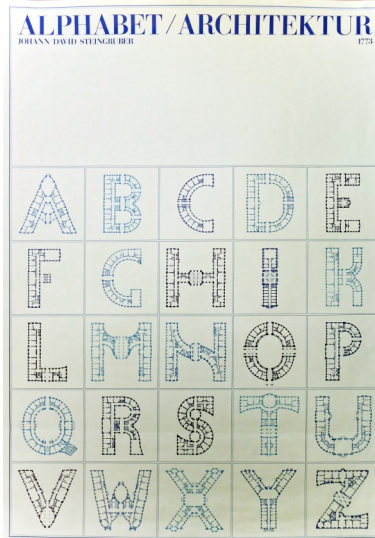 ALPHABET/ARCHITEKTUR
JOHANN DAVID STEINGRUBER 1773
A B C D E
F G H I K
L M N O P
Q R S T U
V W X Y Z